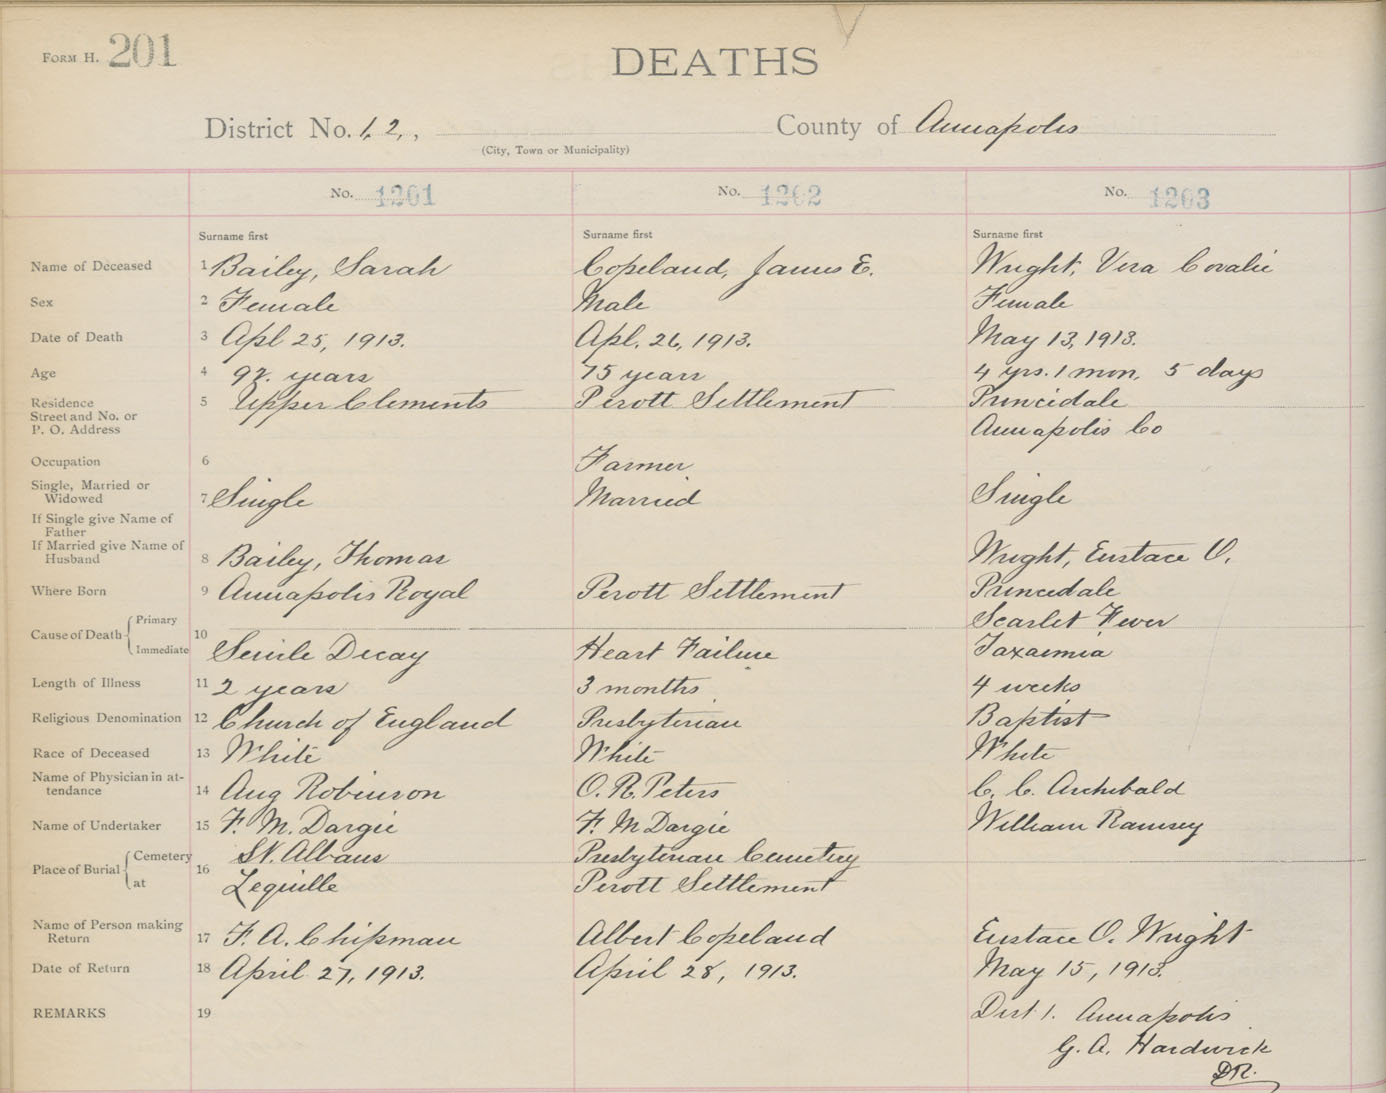 FORM H. 201
DEATHS
District No. 1, 2, , County of Annapolis
(City, Town or Municipality)
No. 1201 No. 1202 No. 1203
Surname first Surname first Surname first
Name of Deceased 1 Bailey, Sarah Copeland, James E. Wright, Vera Coralie
Sex 2 Female Male Female
Date of Death 3 Apl 25, 1913. Apl. 26, 1913. May 13, 1913.
Age 4 92. years 75 years 4 yrs. 1 mon, 5 days
Residence 5 Upper Clements Perott Settlement Princedale
Street and No. or
P. O. Address Annapolis Co
Occupation 6 Farmer
Single, Married or
Widowed 7 Single Married Single
If Single give Name of
Father
If Married give Name of
Husband 8 Bailey, Thomas Wright, Eustace O.
Where Born 9 Annapolis Royal Perott Settlement Princedale
Cause of Death Primary 10 Scarlet Fever
Immediate Senile Decay Heart Failure Taxaemia
Length of Illness 11 2 years 3 months 4 weeks
Religious Denomination 12 Church of England Presbyterian Baptist
Race of Deceased 13 White White White
Name of Physician in at-
tendance 14 Aug Robinson O. R. Peters C. C. Archibald
Name of Undertaker 15 F. M. Dargie F. M Dargie William Ramsey
Place of Burial Cemetery 16 St. Albans Presbyterian Cemetery
at Lequille Perott Settlement
Name of Person making
Return 17 F. A. Chipman Albert Copeland Eustace O. Wright
Date of Return 18 April 27, 1913. April 28, 1913. May 15, 1913.
REMARKS 19 Dist 1. Annapolis
G. A. Hardwick
DR.